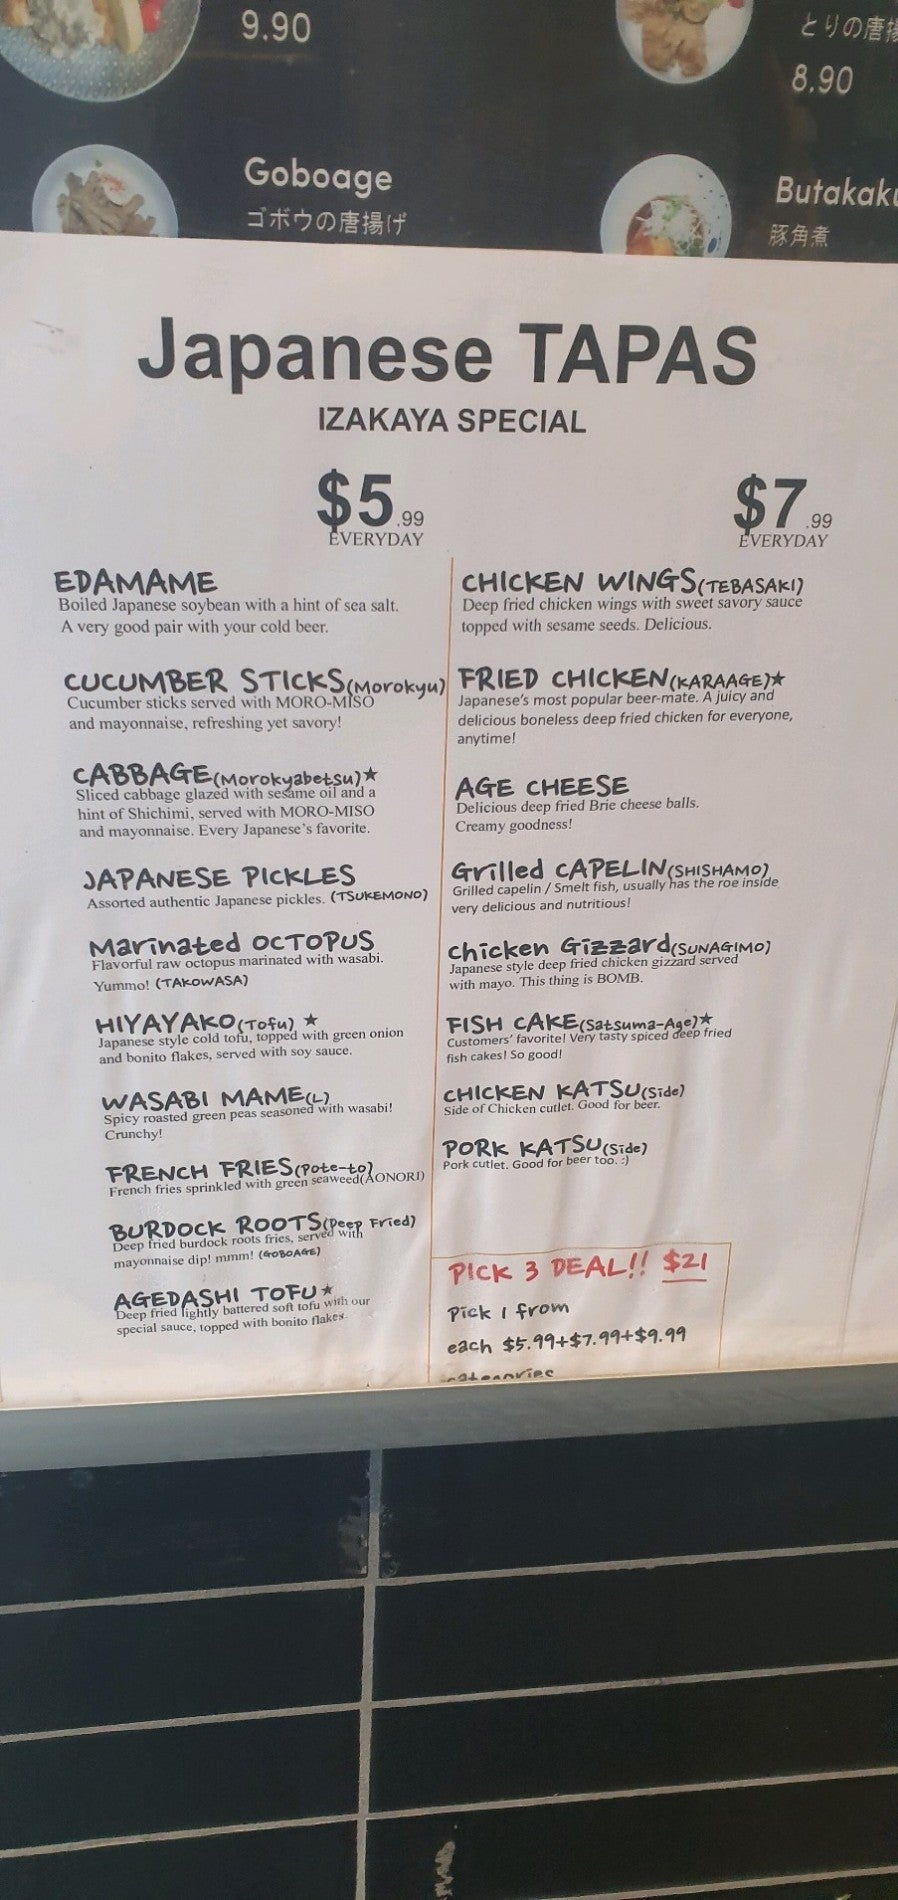 9.90
とりの唐揚
8.90
Goboage
ゴボウの唐揚げ
Butakaku
豚角煮
Japanese TAPAS
IZAKAYA SPECIAL
$5.99
EVERYDAY
EDAMAME
Boiled Japanese soybean with a hint of sea salt.
A very good pair with your cold beer.
CUCUMBER STICKS(Morokyu)
Cucumber sticks served with MORO-MISO
and mayonnaise, refreshing yet savory!
CABBAGE(Morokyabetsu)★
Sliced cabbage glazed with sesame oil and a
hint of Shichimi, served with MORO-MISO
and mayonnaise. Every Japanese's favorite.
JAPANESE PICKLES
Assorted authentic Japanese pickles. (TSUKEMONO)
Marinated OCTOPUS
Flavorful raw octopus marinated with wasabi.
Yummo! (TAKOWASA)
HIYAYAKO(Tofu) ★
Japanese style cold tofu, topped with green onion
and bonito flakes, served with soy sauce.
WASABI MAME(L)
Spicy roasted green peas seasoned with wasabi!
Crunchy!
FRENCH FRIES(Pote-to)
French fries sprinkled with green seaweed(AONORI)
BURDOCK ROOTS(Deep Fried)
Deep fried burdock roots fries, served with
mayonnaise dip! mmm! (GOBOAGE)
AGEDASHI TOFU★
Deep fried lightly battered soft tofu with our
special sauce, topped with bonito flakes.
$7.99
EVERYDAY
CHICKEN WINGS(TEBASAKI)
Deep fried chicken wings with sweet savory sauce
topped with sesame seeds. Delicious.
FRIED CHICKEN(KARAAGE)★
Japanese's most popular beer-mate. A juicy and
delicious boneless deep fried chicken for everyone,
anytime!
AGE CHEESE
Delicious deep fried Brie cheese balls.
Creamy goodness!
Grilled CAPELIN(SHISHAMO)
Grilled capelin / Smelt fish, usually has the roe inside
very delicious and nutritious!
Chicken Gizzard(SUNAGIMO)
Japanese style deep fried chicken gizzard served
with mayo. This thing is BOMB.
FISH CAKE(Satsuma-Age)★
Customers' favorite! Very tasty spiced deep fried
fish cakes! So good!
CHICKEN KATSU(Side)
Side of Chicken cutlet. Good for beer.
PORK KATSU(Side)
Pork cutlet. Good for beer too. :)
PICK 3 DEAL!! $21
Pick 1 from
each $5.99+$7.99+$9.99
categories